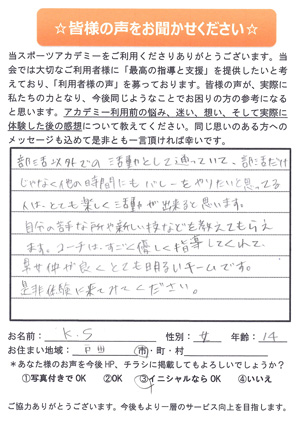 ☆皆様の声をお聞かせください☆
当スポーツアカデミーをご利用くださりありがとうございます。当
会では大切なご利用者様に「最高の指導と支援」を提供したいと考
えており、「利用者様の声」を募っております。皆様の声が、実際に
私たちの力となり、今後同じようなことでお困りの方の参考になる
と思います。アカデミー利用前の悩み、迷い、想い、そして実際に
体験した後の感想について教えてください。同じ思いのある方への
メッセージも込めて是非とも一言頂ければ幸いです。
部活以外での活動として通っていて、部活だけ
じゃなく他の時間にもバレーをやりたいと思ってる
人は、とても楽しく活動が出来ると思います。
自分の苦手な所や新しい技などを教えてもらえ
ます。コーチは、すごく優しく指導してくれて、
男女仲が良くとても明るいチームです。
是非体験に来てみてください。
お名前: K.S 性別: 女 年齢: 14
お住まい地域: 戸田 市・町・村
*あなた様のお声を今後HP、チラシに掲載してもよろしいでしょうか?
①写真付きでOK ②OK ③イニシャルならOK ④いいえ
ご協力ありがとうございます。今後もより一層のサービス向上を目指します。